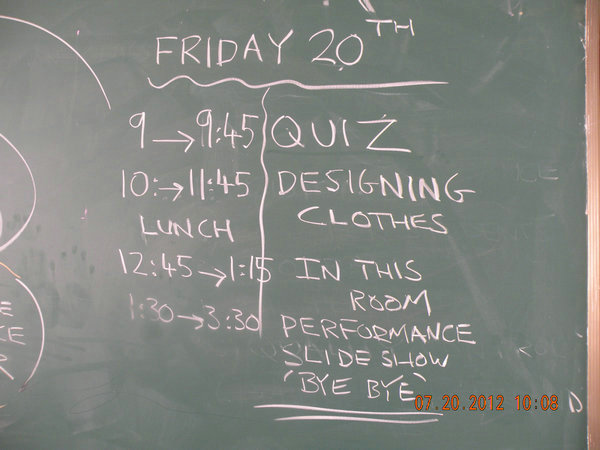 FRIDAY 20TH
9 → 9:45 QUIZ
10: → 11:45 DESIGNING
LUNCH CLOTHES
12:45 → 1:15 IN THIS
ROOM
1:30 → 3:30 PERFORMANCE
SLIDE SHOW
'BYE BYE'
07.20.2012 10:08